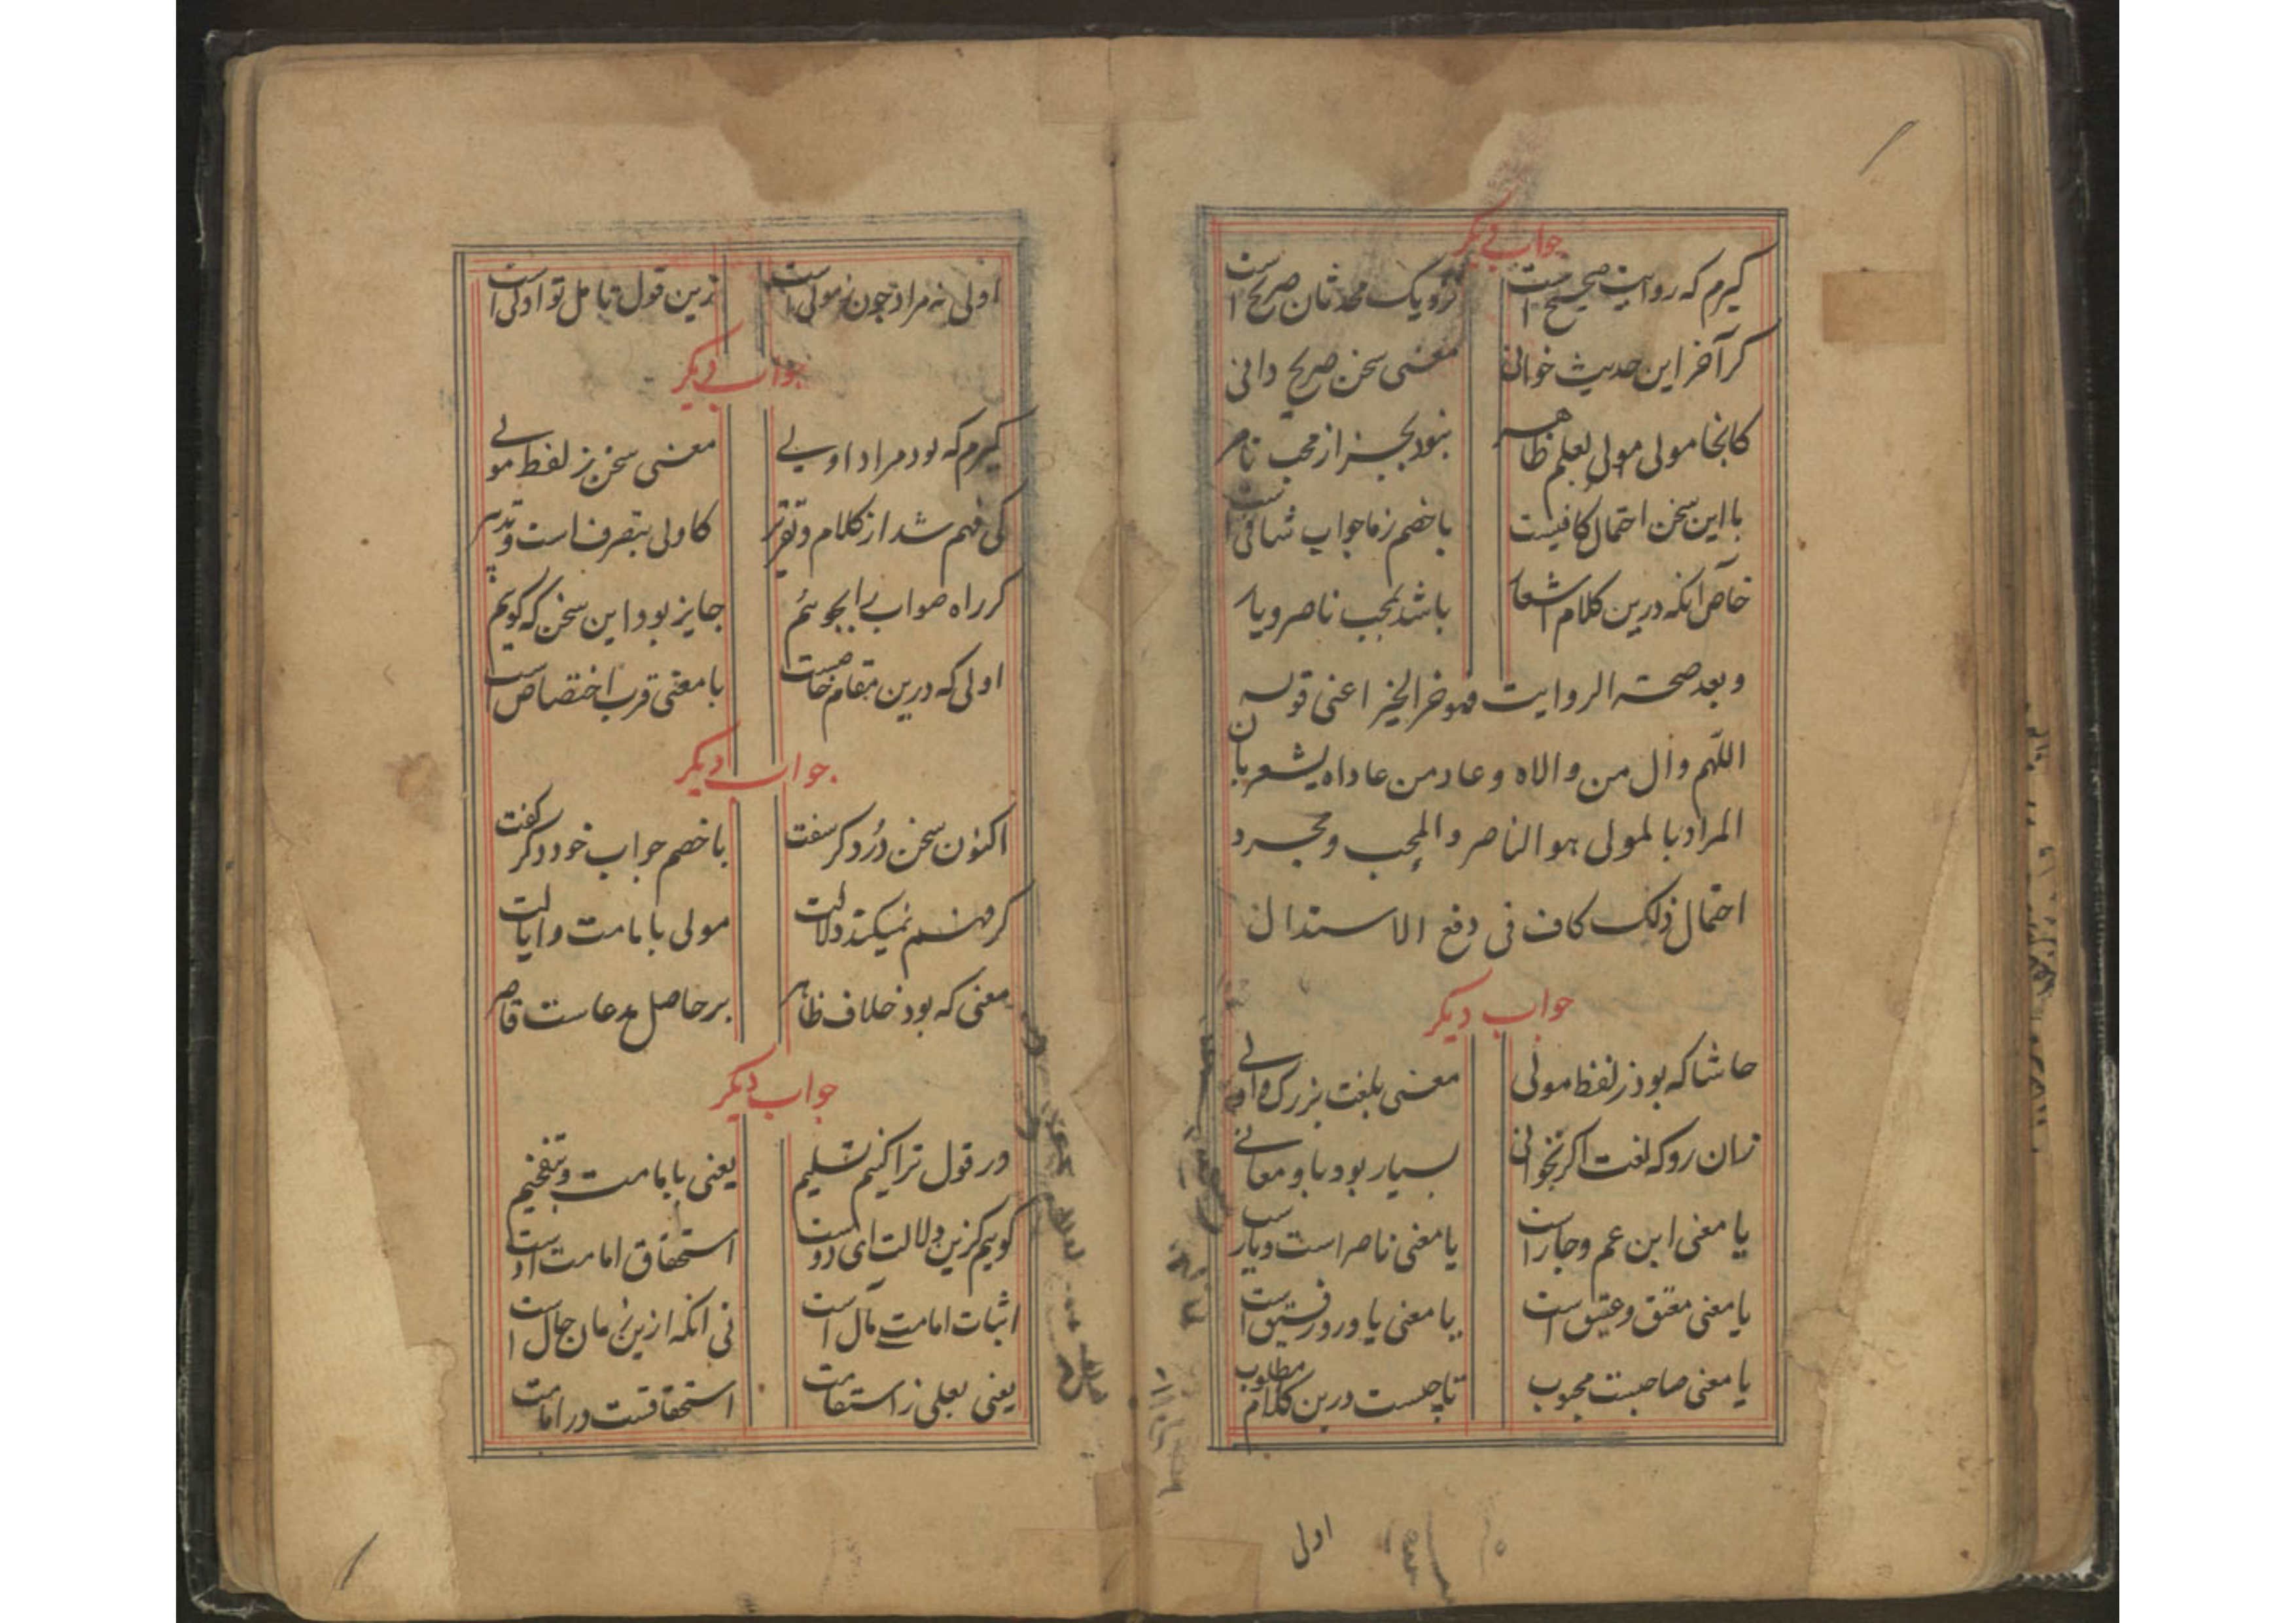 جواب دیگر
گیرم که روایت صحیح است نزدیک محدثان صریح است
گر آخر این حدیث خوانی معنی سخن صریح دانی
کانجا مولی مولی بعلم ظاهر نبود بجز از محب ناصر
با این سخن احتمال کافیست با خصم ز ما جواب شافی است
خاص آنکه درین کلام اشعار باشد بمحب ناصر و یار
و بعد صحته الروایت فموخر الخبر اعنی قوله
اللهم وال من والاه و عاد من عاداه یشعر بان
المراد بالمولی هو الناصر و المحب و مجرد
احتمال ذلک کاف فی دفع الاستدال
جواب دیگر
حاشا که بود ز لفظ مولی معنی بلغت بزرک و اولی
زان رو که لغت اگر بخوانی بسیار بود باو معانی
یا معنی ابن عم و جار است یا معنی ناصر است و یار است
یا معنی معتق و عتیق است یا معنی یاور و رفیق است
یا معنی صاحبست محبوب تا چیست درین کلام مطلوب
اولی
اولی نه مراد چون ز مولی است زین قول تامل تو اولی است
جواب دیگر
گیرم که بود مراد اولی معنی سخن ز لفظ مولی
کی فهم شد از کلام و تقریر کاولی بتصرف است و تدبیر
گر راه صواب را بجوئیم جایز بود این سخن که گوییم
اولی که درین مقام خاصست با معنی قرب اختصاص است
جواب دیگر
اکنون سخن در دگر سفت با خصم جواب خود دگر گفت
گر فهم نمیکند دلالت مولی بامامت و ایالت
معنی که بود خلاف ظاهر بر حاصل مدعاست قاصر
جواب دیگر
ور قول ترا کنیم تسلیم یعنی بامامت و تفخیم
گوییم کزین دلالت ای دوست استحقاق امامت اوست
اثبات امامت مآل است نی آنکه ازین زمان حال است
یعنی بعلی ز استقامت استحقاقست در امامت